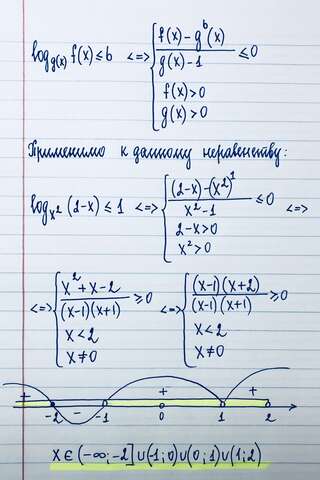 log_{g(x)} f(x) ≤ b <=> { (f(x) - g^b(x)) / (g(x) - 1) ≤ 0
f(x) > 0
g(x) > 0
Применимо к данному неравенству:
log_{x^2} (2-x) ≤ 1 <=> { ((2-x) - (x^2)^1) / (x^2 - 1) ≤ 0 <=>
2-x > 0
x^2 > 0
<=> { (x^2 + x - 2) / ((x-1)(x+1)) ≥ 0 <=> { ((x-1)(x+2)) / ((x-1)(x+1)) ≥ 0
x < 2 x < 2
x ≠ 0 x ≠ 0
+ - + +
-2 -1 0 1 2
x ∈ (-∞; -2] ∪ (-1; 0) ∪ (0; 1) ∪ (1; 2)